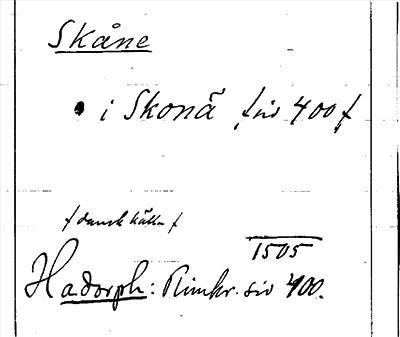 Skåne
• i Skonå / siv 400 /
/ dansk källa /
1505
Hadorph: Rimkr. siv 400.